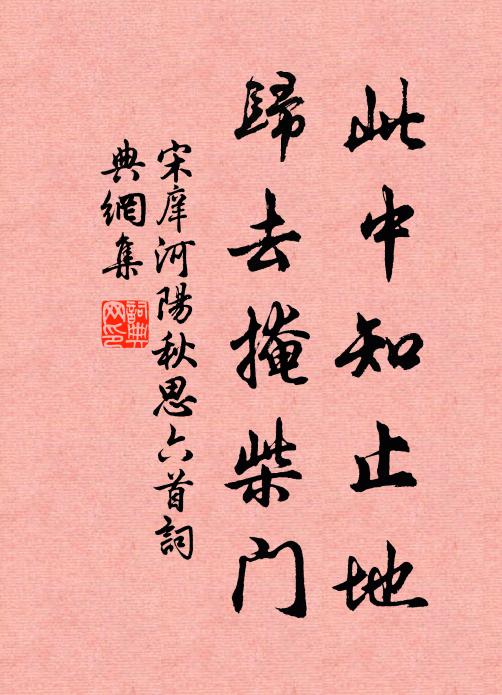 此中知止地
歸去掩柴门
宋庠河陽秋思六首詞
典網集
詞典
网印